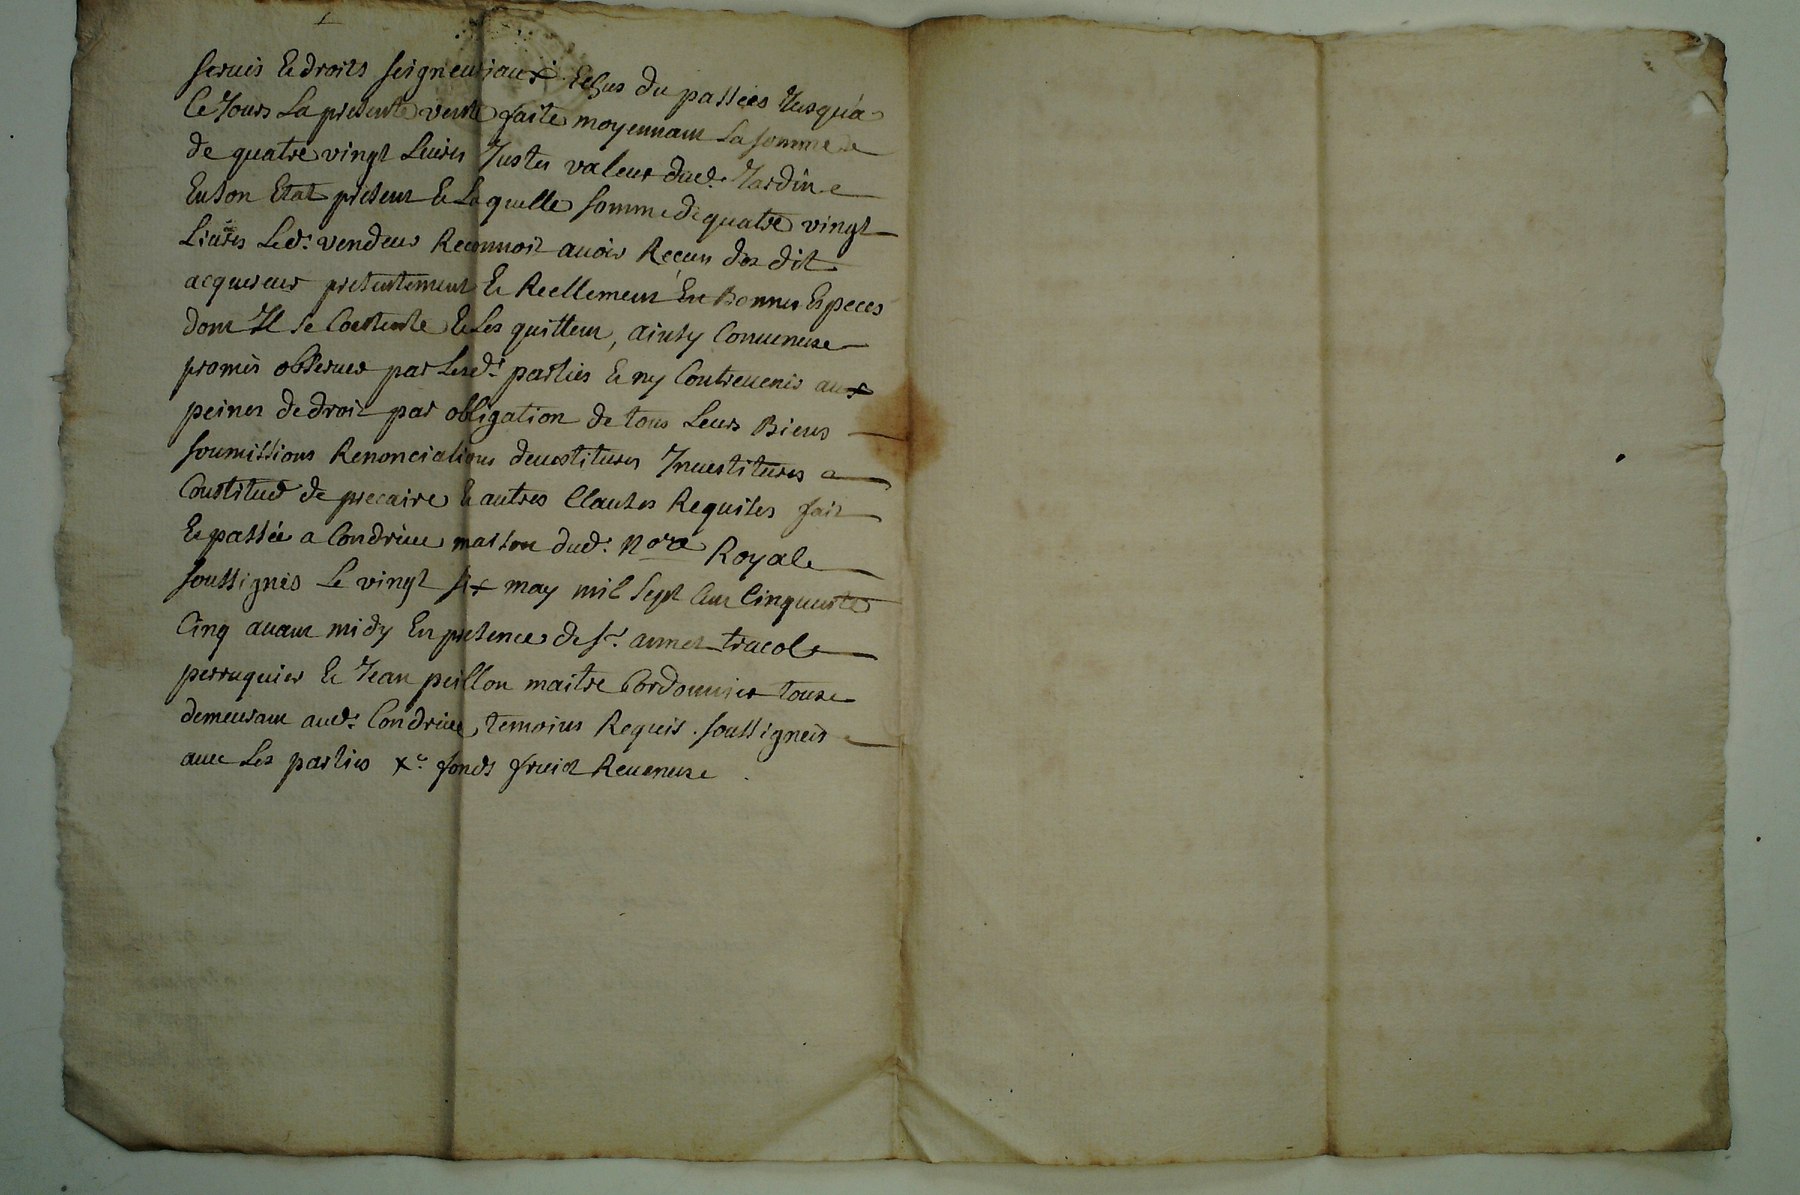 servis & droits seigneuriaux Echus du passées Jusqu'a
Ce Jours La presente vente faite moyennant La somme
de quatre vingt Livres Justes valeur dud. Jardin
En son Etat present & Laquelle somme de quatre vingt
Livres Led. vendeur Reconnoit avoir Receu du dit
acquereur presentement & Reellement En Bonnes Especes
dont Il se Contente & Les quitteur, ainsy Convenuse
promis observer par Lesd. parties & ny Contrevenir aux
peines de droit par obligation de tous Leurs Biens
soumissions Renonciations devestitures Investitures
Constitué de precaire & autres Clauses Requises fait
& passée a Condrieu maison dud. Nore Royal
soussignés Le vingt six may mil sept Cent Cinquante
Cinq avant midy En presence de sr. annet tracol
perruquier & Jean peillon maitre Cordonnier touse
demeurant aud. Condrieu temoins Requis soussignés
avec Les parties xe. fonds fruict Revenuse